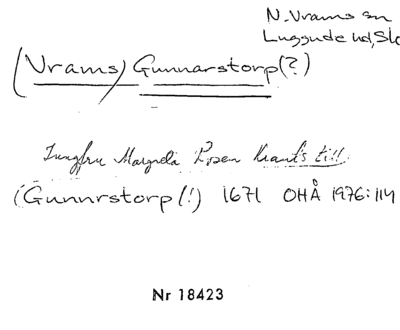 N. Vrams sn
Luggude hd, Sk
(Vrams) Gunnarstorp (?)
Jungfru Margreta Rosen Krants till
(Gunnrstorp (!) 1671 OHÅ 1976:114
Nr 18423